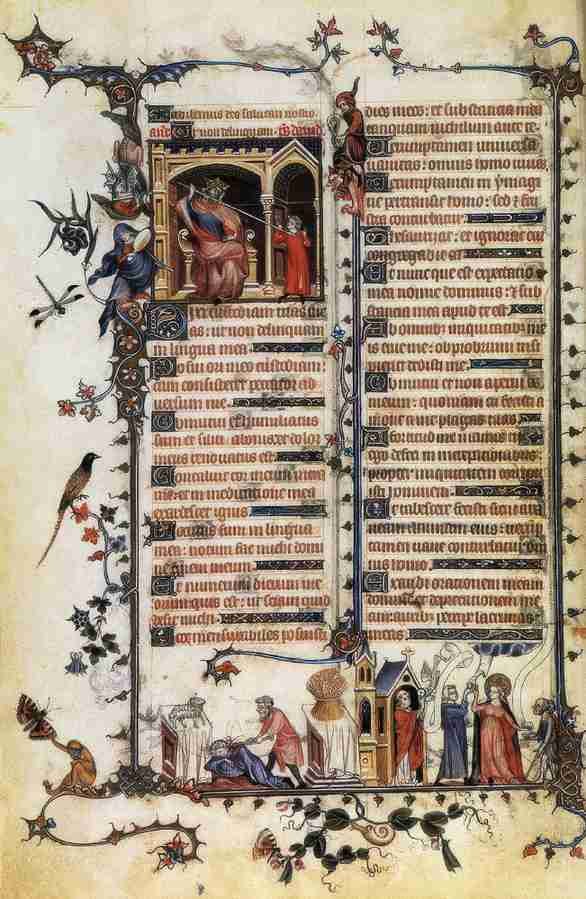 deo salutari nostro
Ut non delinquam. david
Dixi custodiam vias me
as: ut non delinquam
in lingua mea.
Posui ori meo custodiam:
cum consisteret peccator ad
versum me.
Obmutui et humiliatus
sum et silui a bonis: et dolor
meus renovatus est.
Concaluit cor meum intra
me: et in meditatione mea
exardescet ignis.
Locutus sum in lingua
mea: notum fac michi domi
ne finem meum.
Et numerum dierum me
orum quis est: ut sciam quid
desit michi.
Ecce mensurabiles posuisti
dies meos: et substancia mea
tanquam nichilum ante te.
Verumptamen universa
vanitas: omnis homo vivens.
Verumptamen in ymagi
ne pertransit homo: sed et fru
stra conturbatur.
Thesaurizat: et ignorat cui
congregabit ea.
Et nunc que est expectatio
mea nonne dominus: et sub
stancia mea apud te est.
Ab omnibus iniquitatibus me
is erue me: obprobrium insi
pienti dedisti me.
Obmutui et non aperui os
meum: quoniam tu fecisti a
move a me plagas tuas.
A fortitudine manus tue
ego defeci in increpationibus
propter iniquitatem corripu
isti hominem.
Et tabescere fecisti sicut ara
neam animam eius: verum
tamen vane conturbatur om
nis homo.
Exaudi orationem meam
domine et deprecationem me
am: auribus percipe lacrimas
meas.